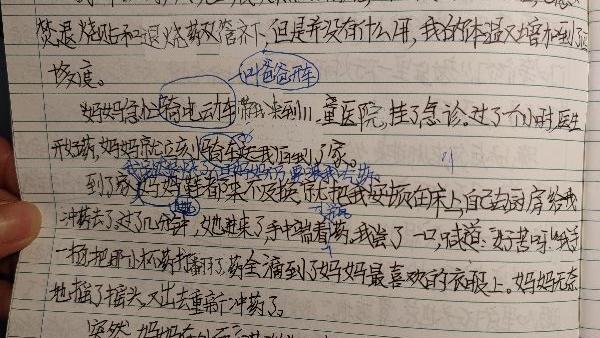 焚退烧贴和退烧药双管齐下,但是并没有什么用,我的体温又增加到了
度。
叫爸爸开车
妈妈急忙骑电动车带我来到儿童医院,挂了急诊。过了个小时医生
开好药,妈妈就立刻骑车接我回到了家。
到了家妈妈鞋都来不及换就把我安顿在床上,自己去厨房给我
冲药去了,过了几分钟,她进来了手中端着药,我尝了一口,喊道:"好苦呀!"我手
一扬把那小杯药打翻了,药全洒到了妈妈最喜欢的衣服上。妈妈无奈
地摇了摇头,又出去重新冲药了。
突然,妈妈